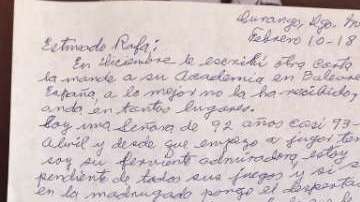 Durango, Dgo, M
Febrero 10-18
Estimado Rafa:
En Diciembre le escribí otra carta
la mande a su Academia en Balear
España, a lo mejor no la ha recibido,
anda en tantos lugares.
Soy una Señora de 92 años casi 93-
Abril y desde que empezo a jugar ten
soy su ferviente admiradora, estoy
pendiente de todos sus juegos y si
en la madrugada pongo el desperta